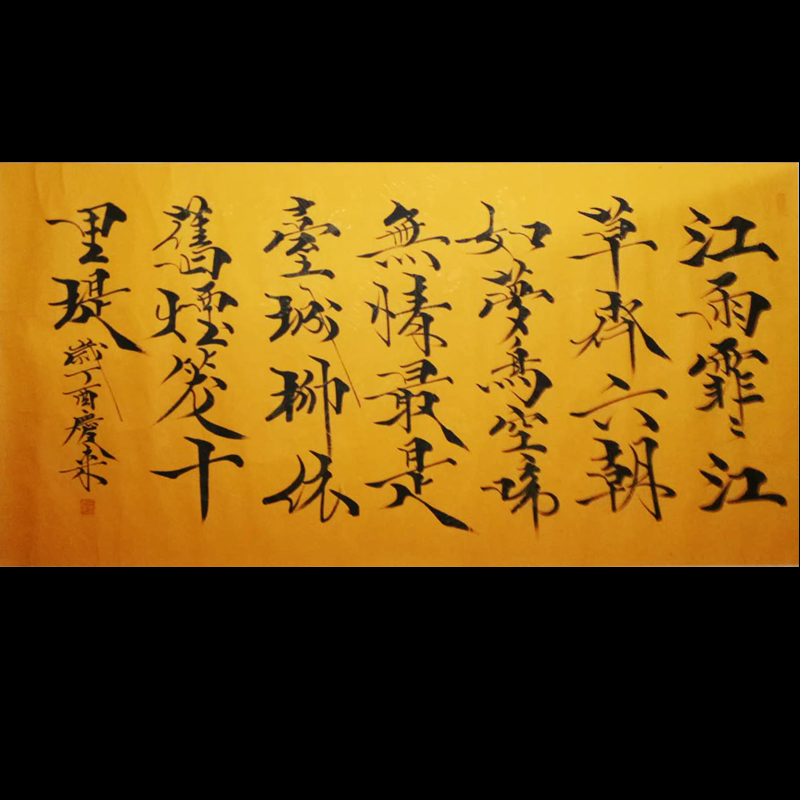 江雨霏〻江
草齊六朝
如夢鳥空啼
無情最是
臺城柳依
舊煙笼十
里堤
歲丁酉慶来